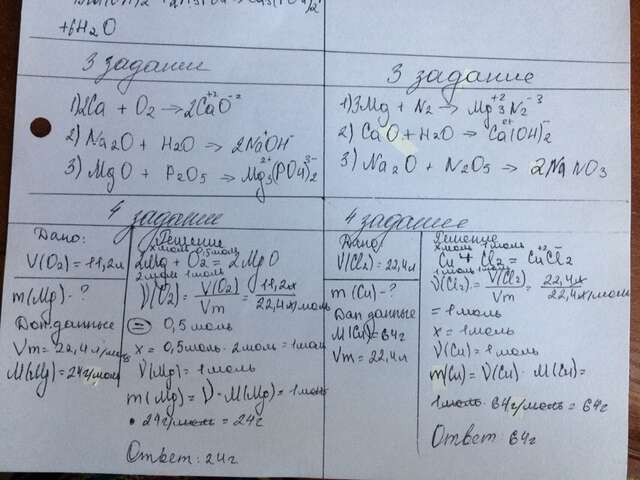 +6H₂O
3 задание
1) 2Ca + O₂ → 2Ca⁺²O⁻²
2) Na₂O + H₂O → 2Na⁺OH⁻
3) MgO + P₂O₅ → Mg₃²⁺(PO₄)₂³⁻
3 задание
1) 3Mg + N₂ → Mg₃⁺²N₂⁻³
2) CaO + H₂O → Ca²⁺(OH)₂⁻
3) Na₂O + N₂O₅ → 2NaNO₃
4 задание
Дано:
V(O₂) = 11,2л
m(Mg) - ?
Доп данные
Vm = 22,4л/моль
M(Mg) = 24г/моль
Решение
x моль 0,5моль
2Mg + O₂ = 2MgO
2моль 1моль
ν(O₂) = V(O₂)/Vm = 11,2л/22,4л/моль
= 0,5моль
x = 0,5моль · 2моль = 1моль
ν(Mg) = 1моль
m(Mg) = ν · M(Mg) = 1моль
· 24г/моль = 24г
Ответ: 24г
4 задание
Дано:
V(Cl₂) = 22,4л
m(Cu) - ?
Доп данные
M(Cu) = 64г
Vm = 22,4л
Решение
x моль 1моль
Cu + Cl₂ = Cu⁺²Cl₂
1моль 1моль
ν(Cl₂) = V(Cl₂)/Vm = 22,4л/22,4л/моль
= 1моль
x = 1моль
ν(Cu) = 1моль
m(Cu) = ν(Cu) · M(Cu) =
1моль · 64г/моль = 64г
Ответ: 64г